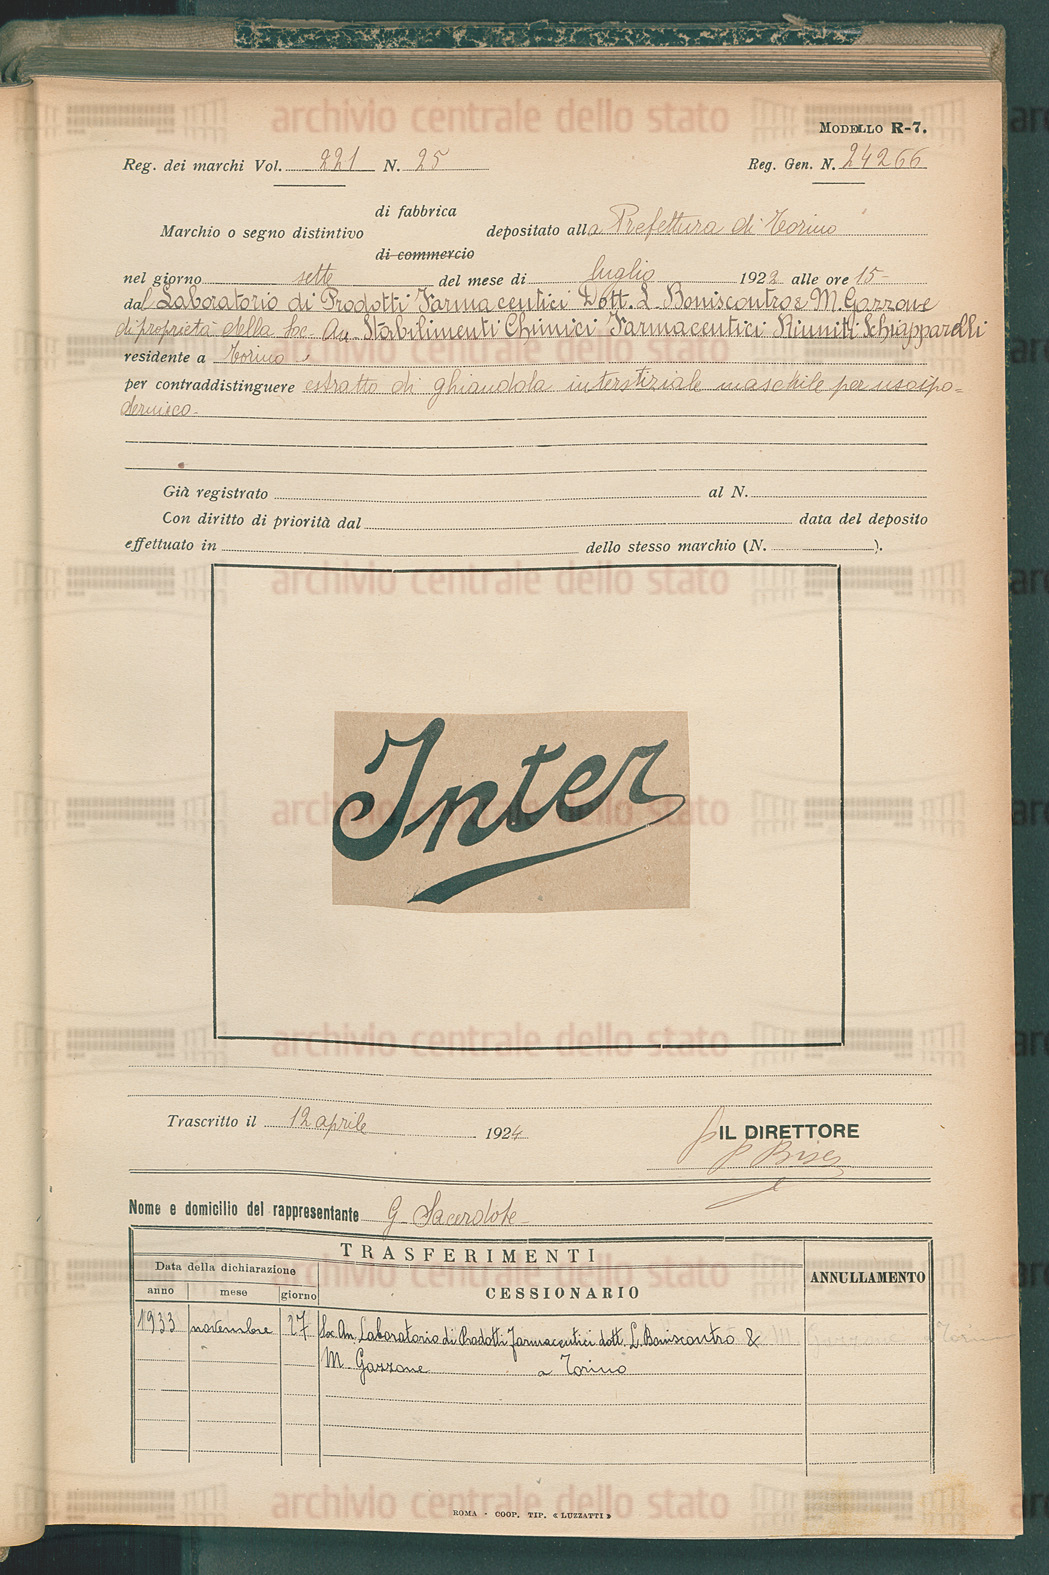 MODELLO R-7.
Reg. dei marchi Vol. 221 N. 25 Reg. Gen. N. 24266
di fabbrica
Marchio o segno distintivo depositato alla Prefettura di Torino
di commercio
nel giorno sette del mese di luglio 1922 alle ore 15
dal Laboratorio di Prodotti Farmaceutici Dott. L. Boniscontro e M. Gazzone
di proprietà della Soc. An. Stabilimenti Chimici Farmaceutici Riuniti Schiapparelli
residente a Torino
per contraddistinguere estratto di ghiandola interstiziale maschile per uso ipo-
dermico.
Già registrato al N.
Con diritto di priorità dal data del deposito
effettuato in dello stesso marchio (N. ).
Inter
Trascritto il 12 aprile 1924
IL DIRETTORE
Nome e domicilio del rappresentante G. Sacerdote
TRASFERIMENTI
Data della dichiarazione
CESSIONARIO
ANNULLAMENTO
anno mese giorno
1933 novembre 27 Soc. An. Laboratorio di Prodotti farmaceutici dott. L. Boniscontro &
M. Gazzone a Torino
ROMA - COOP. TIP. « LUZZATTI »
archivio centrale dello stato
archivio centrale dello stato
archivio centrale dello stato
archivio centrale dello stato
archivio centrale dello stato
archivio centrale dello stato
archivio centrale dello stato